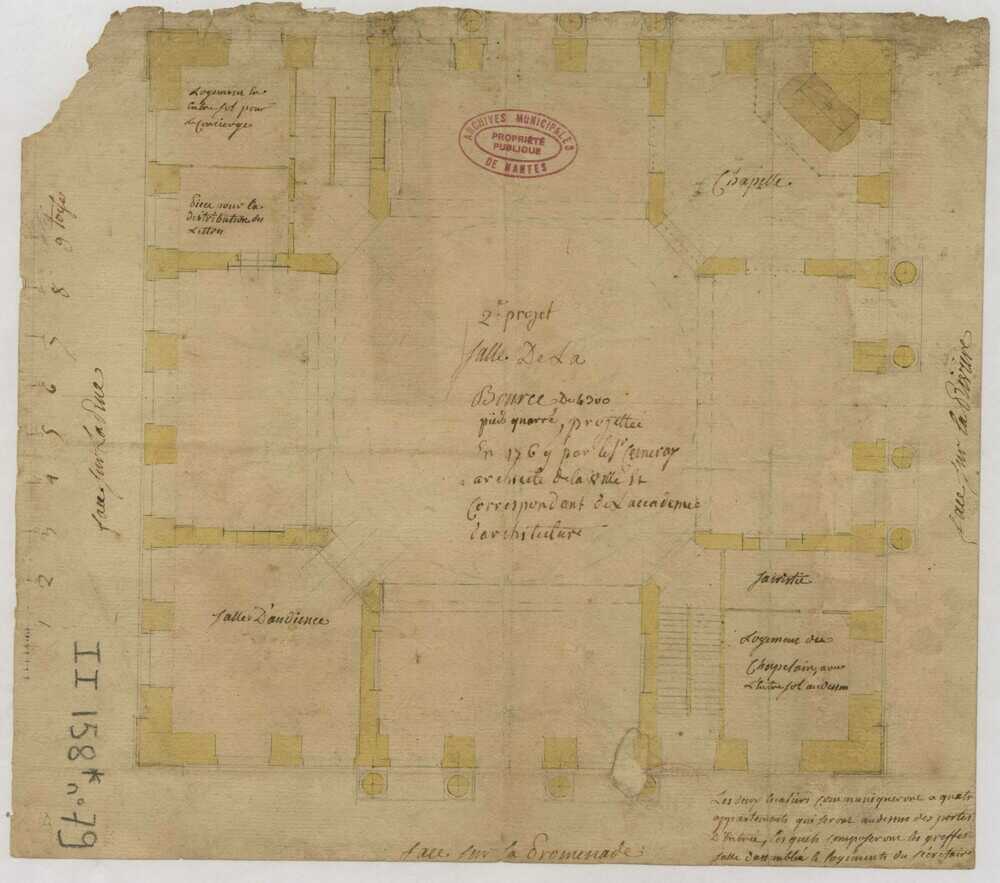 Logement en
entre sol pour
le Concierge
Piece pour la
distribution des
Lettres
ARCHIVES MUNICIPALES
PROPRIÉTÉ
PUBLIQUE
DE NANTES
Chapelle.
2e projet
salle De La
Bource De 6300
pieds quarré, projettée
En 1769 par le Sr Ceineray
architecte de la ville Et
Correspondant de L'accademie
d'architecture
face sur La Rue
face sur la Riviere
1 2 3 4 5 6 7 8 9 toises
salle D'audience
sacristie
Logement du
Chapelain, avec
L'entre sol au dessus
II 158* n° 79
face sur la Promenade
Les deux Escaliers communiqueront a quatre
appartements qui seront au dessus des portes
D'Entrée, lesquels composeront les greffes
salle d'assemblée & logements du secretaire